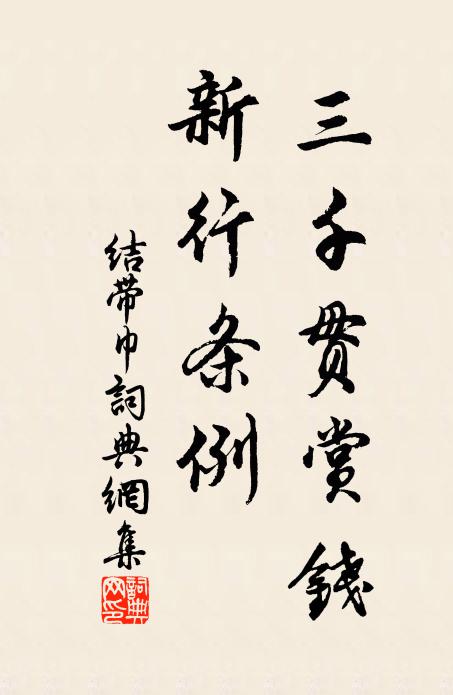 三千贯赏钱
新行条例
结带巾詞典網集
詞典
网印